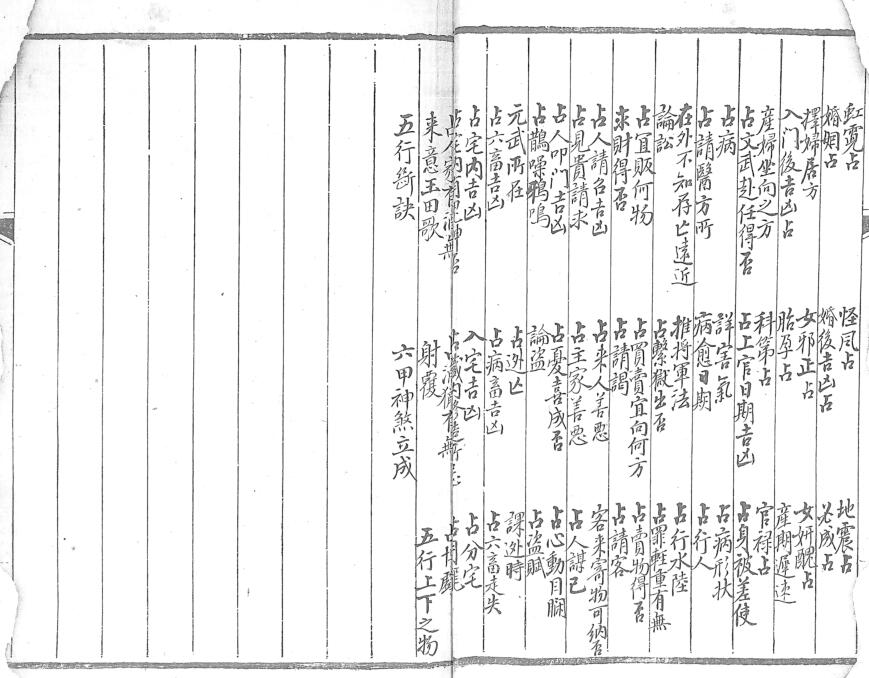 虹霓占　怪風占　地震占
婚姻占　婚後吉凶占　必成占
擇婦居方　女邪正占　女妍醜占
入门後吉凶占　胎孕占　產期遲速
産婦坐向之方　科第占　官禄占
占文武赴任得否　占上官日期吉凶　占身被差使
占病　詳害氣　占病形状
占請醫方所　病愈日期　占行人
在外不知存亡遠近　推將軍法　占行水陸
論訟　占繫獄出否　占罪輕重有無
占宜販何物　占買賣宜向何方　占賣物得否
求財得否　占請謁　占請客
占人請名吉凶　占来人善悪　客来寄物可納否
占見貴請求　占主家善悪　占人謀己
占人叩门吉凶　占憂喜成否　占心動目瞤
占鵲噪鴉鳴　論盗　占盗賊
元武所在　占迯亡　課迯時
占六畜吉凶　占病畜吉凶　占六畜走失
占宅内吉凶　入宅吉凶　占分宅
来意玉田歌　射覆　五行上下之物
五行斷訣　六甲神煞立成